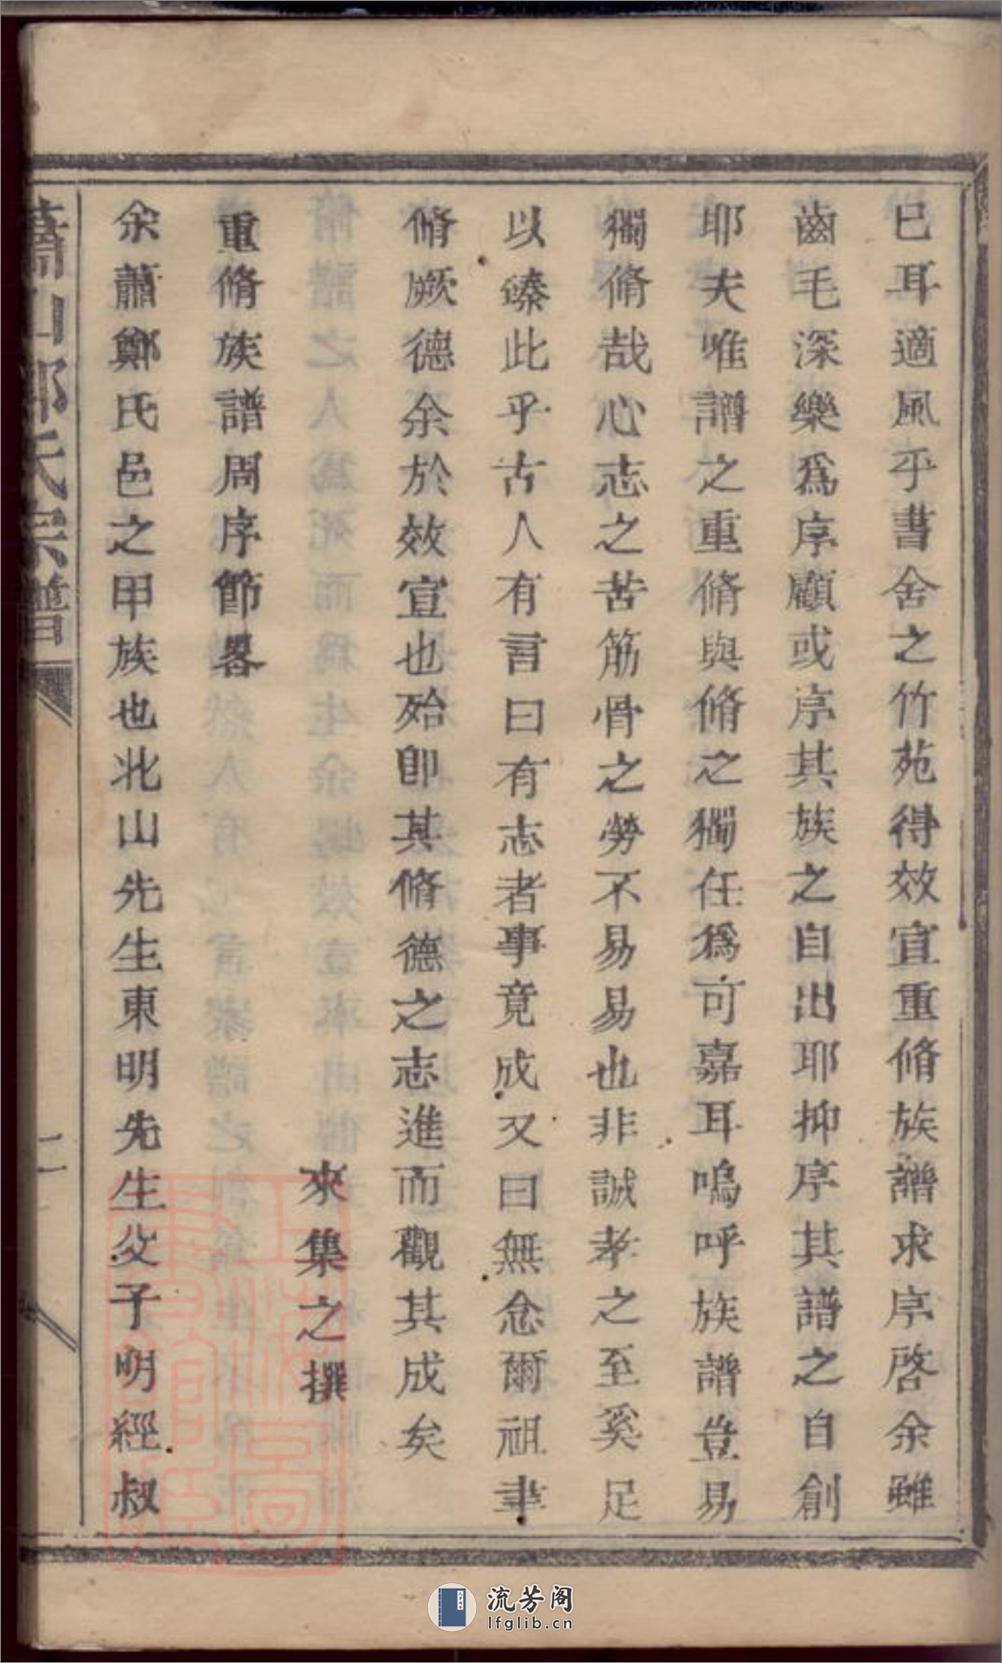 巳耳適風乎書舍之竹苑得效宣重脩族譜求序啓余雖
齒毛深樂爲序顧或序其族之自出耶抑序其譜之自創
耶夫唯譜之重脩與脩之獨任爲可嘉耳嗚呼族譜豈易
獨脩哉心志之苦筋骨之勞不易易也非誠孝之至奚足
以臻此乎古人有言曰有志者事竟成又曰無念爾祖聿
脩厥德余於效宣也殆卽其脩德之志進而觀其成矣
來集之撰
重脩族譜周序節畧
余蕭鄭氏邑之甲族也北山先生東明先生父子明經叔
蕭山鄭氏宗譜
二
上海圖書館藏
流芳阁
lfglib.cn